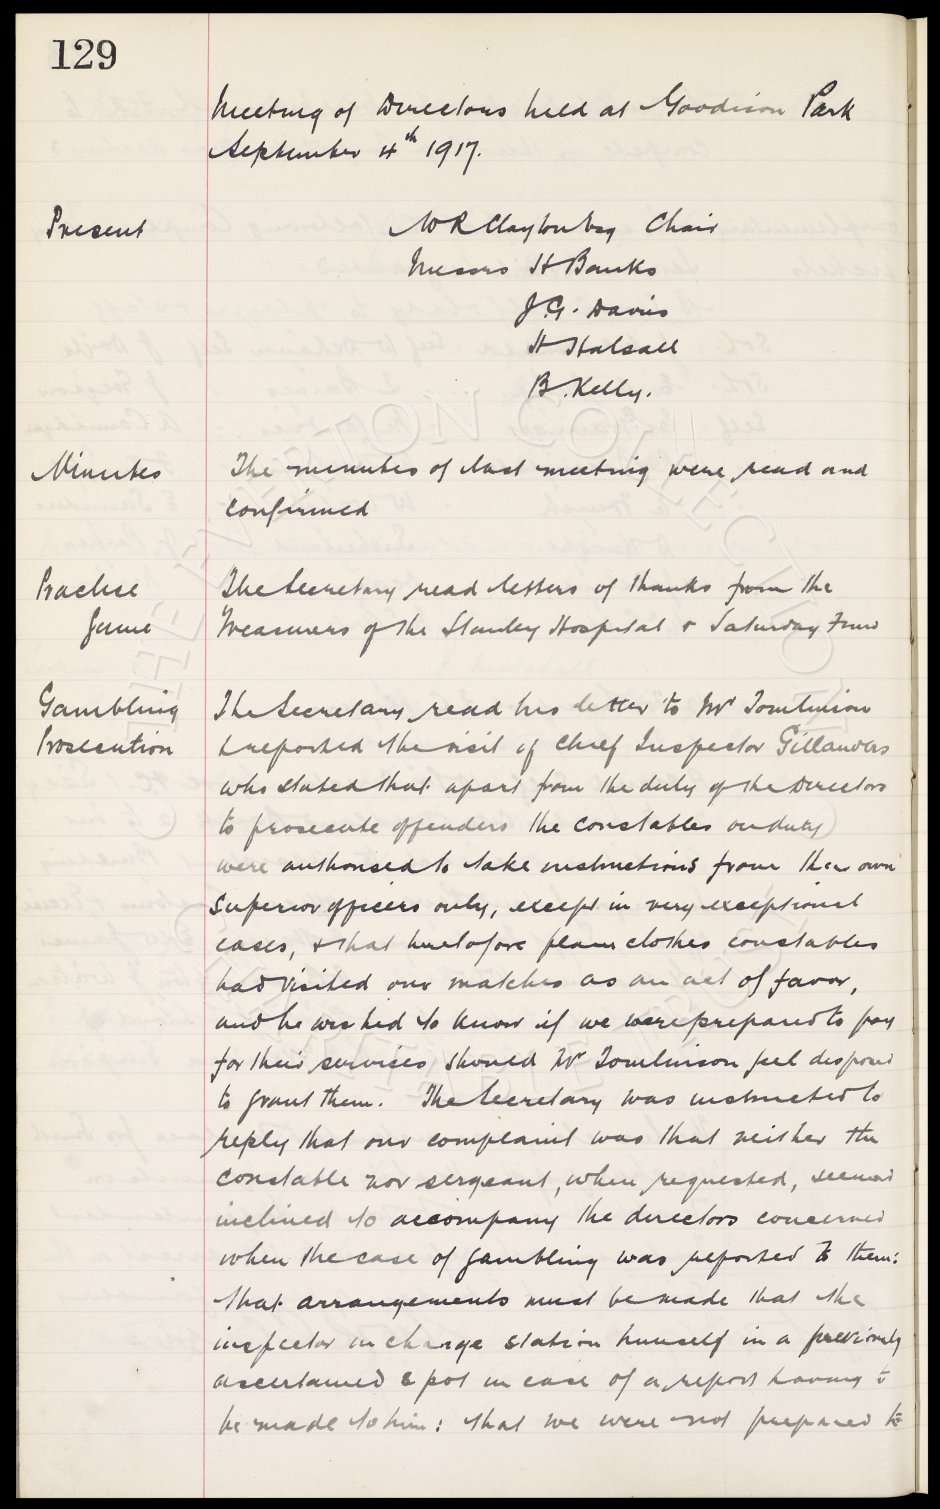 129
Meeting of Directors held at Goodison Park
September 4th 1917.
Present
W R Clayton Esq Chair
Messrs H Banks
J. G. Davis
H Halsall
B. Kelly.
Minutes
The minutes of last meeting were read and
confirmed
Practise
Game
The Secretary read letters of thanks from the
Treasurers of the Stanley Hospital & Saturday Fund
Gambling
Prosecution
The Secretary read his letter to Mr Tomlinson
& reported the visit of Chief Inspector Gillanders
who stated that apart from the duty of the Directors
to prosecute offenders the constables on duty
were authorised to take instructions from their own
superior officers only, except in very exceptional
cases, & that heretofore plain clothes constables
had visited our matches as an act of favor,
and he wished to know if we were prepared to pay
for their services should Mr Tomlinson feel disposed
to grant them. The Secretary was instructed to
reply that our complaint was that neither the
constable nor sergeant, when requested, seemed
inclined to accompany the directors concerned
when the case of gambling was reported to them:
that arrangements must be made that the
inspector in charge station himself in a previously
ascertained spot in case of a report having to
be made to him: that we were not prepared to